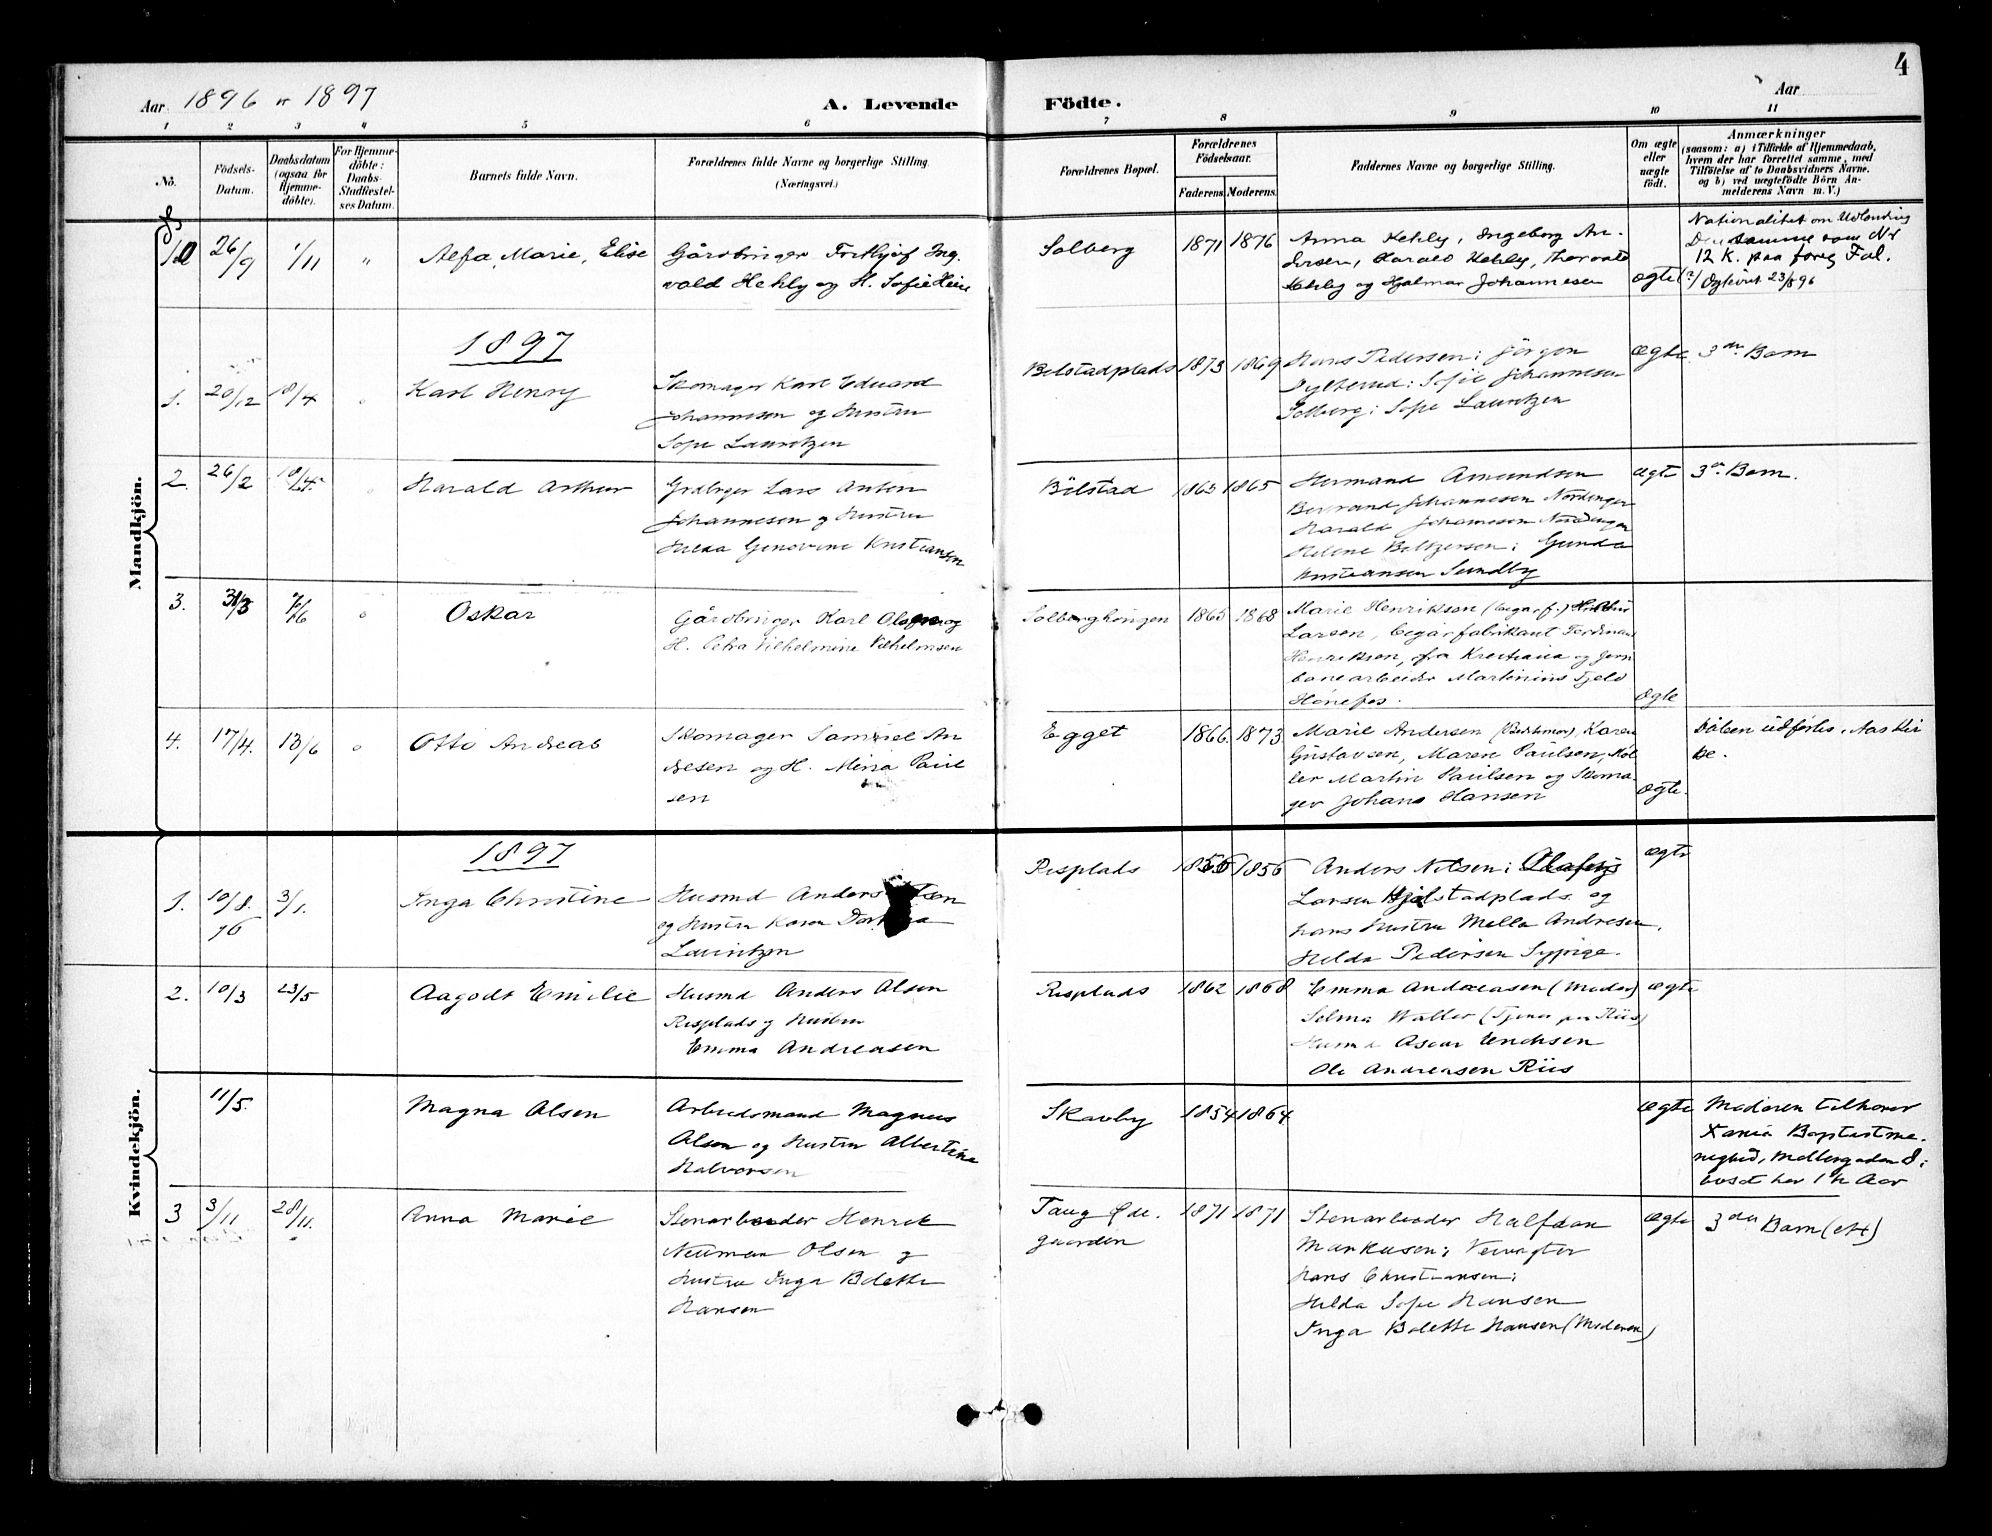 4
Aar 1896 - 1897
A. Levende
Födte.
Aar
1 2 3 4 5 6 7 8 9 10 11
No.
Födsels-Datum.
Daabsdatum (ogsaa for Hjemme-döbte).
For Hjemme-döbte: Daabs-Stadfæstel-ses Datum.
Barnets fulde Navn.
Forældrenes fulde Navne og borgerlige Stilling.
(Næringsvei.)
Forældrenes Bopæl.
Forældrenes Födselsaar.
Faderens. Moderens.
Faddernes Navne og borgerlige Stilling.
Om ægte eller uægte födt.
Anmærkninger
(saasom: a) i Tilfælde af Hjemmedaab, hvem der har forrettet samme, med Tilföielse af to Daabsvidners Navne. og b) ved uægtefödte Börn An-melderens Navn m. V.)
Mandkjön.
26/9 1/11 " Alfa, Marie, Elise
Gårdbruger Forthjof Ing.
vald Hehly og H. Sofie Heie
Solberg 1871 1876
Anna Hehly, Ingeborg An-
dersen, Harald Hehly, Thorvald
Hehly og Hjalmar Johannesen
ægte
Nationalitet om Udlending
Den samme som Nr
12 K. paa foreg Fol.
Ægteviet 23/8 96
1897
1. 20/12 18/4 Karl Henry
Skomager Karl Eduard
Johannesen og Hustru
Sofie Lauritzen
Bilstadplads 1873 1869
Hans Pedersen; Jörgen
Sofie Johannesen
Solberg; Sofie Lauritzen
ægte 3die Barn
2. 26/2 18/4 Harald Arthur
Grdbrger Lars Anton
Johannesen og Hustru
Hilda Genovine Kristiansen
Bilstad 1865 1865
Hermand Amundsen
Bertrand Johannesen Nordengen
Harald Johannesen Nordengen
Helene Beltzersen; Gunda
Kristiansen Sundby
ægte 3die Barn.
3. 31/3 6/6 Oskar
Gårdbruger Karl Olsen og
H. Petra Vilhelmine Vilhelmsen
Solberghöugen 1865 1868
Marie Henriksen (Cigarf.)
Larsen, Cigarfabrikant Ferdinan
Henriksen, fra Kristiania og Jern
banearbeider Martinius Fjeld
Hönefos.
Ægte
4. 17/4. 13/6 Otto Andreas
Skomager Samuel An
dresen og H. Mina Paul
sen
Egget 1866. 1873
Marie Andersen (Bestemor), Karen
Gustavsen, Maren Paulsen, Möl
ler Martin Paulsen og Skoma
ger Johans Hansen
Ægte.
Dåben udförtes i Aas Kir
ke.
Kvindekjön.
1897
1. 10/8. 96 3/1. Inga Christine
Husmd Anders Nilsen
og Hustru Karen
Lauritzen
Risplads 1856
Anders Nilsen;
Larsen Hjelstadplads og
hans Hustru Mella Andresen,
Hilda Pedersen Sypige.
ægte
2. 10/3 23/5 Aagodt Emilie
Husmd Anders Olsen
Risplads og Hustru
Emma Andreasen
Risplads 1862 1868
Emma Andreasen (Moder)
Selma Walter (Tjener paa Riis)
Husmd Oscar Erichsen
Ole Andreasen Riis
ægte
11/5. Magna Olsen
Arbeidsmand Magnus
Olsen og Hustru Albertine
Halvorsen
Skavby 1854 1864
ægte
Moderen tilhører
Xania Baptistme-
nighed, Møllergaden 8;
bosat her 1½ Aar
3 3/11 28/11. Anna Marie
Stenarbeider Henrik
Neuman Olsen og
Hustru Inga Bolette
Hansen
Taug Öde.
gaarden
1871 1871
Stenarbeider Halfdan
Markusen; Veivogter
Hans Christiansen;
Hilda Sofie Hansen
Inga Bolette Hansen (Moderen)
ægte 3die Barn